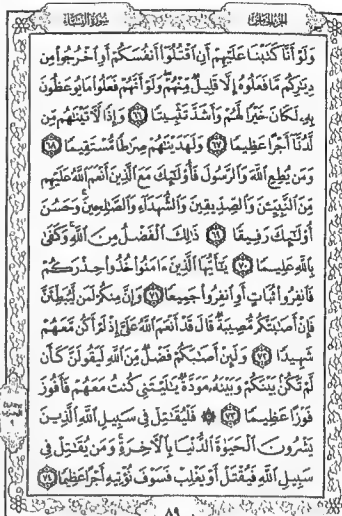 الجزء الخامس
سورة النساء
وَلَوْ أَنَّا كَتَبْنَا عَلَيْهِمْ أَنِ ٱقْتُلُوٓا۟ أَنفُسَكُمْ أَوِ ٱخْرُجُوا۟ مِن
دِيَٰرِكُم مَّا فَعَلُوهُ إِلَّا قَلِيلٌ مِّنْهُمْ وَلَوْ أَنَّهُمْ فَعَلُوا۟ مَا يُوعَظُونَ
بِهِۦ لَكَانَ خَيْرًا لَّهُمْ وَأَشَدَّ تَثْبِيتًا ٦٦ وَإِذًا لَّـَٔاتَيْنَٰهُم مِّن
لَّدُنَّآ أَجْرًا عَظِيمًا ٦٧ وَلَهَدَيْنَٰهُمْ صِرَٰطًا مُّسْتَقِيمًا ٦٨
وَمَن يُطِعِ ٱللَّهَ وَٱلرَّسُولَ فَأُو۟لَٰٓئِكَ مَعَ ٱلَّذِينَ أَنْعَمَ ٱللَّهُ عَلَيْهِم
مِّنَ ٱلنَّبِيِّـۧنَ وَٱلصِّدِّيقِينَ وَٱلشُّهَدَآءِ وَٱلصَّٰلِحِينَ وَحَسُنَ
أُو۟لَٰٓئِكَ رَفِيقًا ٦٩ ذَٰلِكَ ٱلْفَضْلُ مِنَ ٱللَّهِ وَكَفَىٰ
بِٱللَّهِ عَلِيمًا ٧٠ يَٰٓأَيُّهَا ٱلَّذِينَ ءَامَنُوا۟ خُذُوا۟ حِذْرَكُمْ
فَٱنفِرُوا۟ ثُبَاتٍ أَوِ ٱنفِرُوا۟ جَمِيعًا ٧١ وَإِنَّ مِنكُمْ لَمَن لَّيُبَطِّئَنَّ
فَإِنْ أَصَٰبَتْكُم مُّصِيبَةٌ قَالَ قَدْ أَنْعَمَ ٱللَّهُ عَلَىَّ إِذْ لَمْ أَكُن مَّعَهُمْ
شَهِيدًا ٧٢ وَلَئِنْ أَصَٰبَكُمْ فَضْلٌ مِّنَ ٱللَّهِ لَيَقُولَنَّ كَأَن
لَّمْ تَكُنۢ بَيْنَكُمْ وَبَيْنَهُۥ مَوَدَّةٌ يَٰلَيْتَنِى كُنتُ مَعَهُمْ فَأَفُوزَ
فَوْزًا عَظِيمًا ٧٣ ۞ فَلْيُقَٰتِلْ فِى سَبِيلِ ٱللَّهِ ٱلَّذِينَ
يَشْرُونَ ٱلْحَيَوٰةَ ٱلدُّنْيَا بِٱلْـَٔاخِرَةِ وَمَن يُقَٰتِلْ فِى
سَبِيلِ ٱللَّهِ فَيُقْتَلْ أَوْ يَغْلِبْ فَسَوْفَ نُؤْتِيهِ أَجْرًا عَظِيمًا ٧٤
٨٩